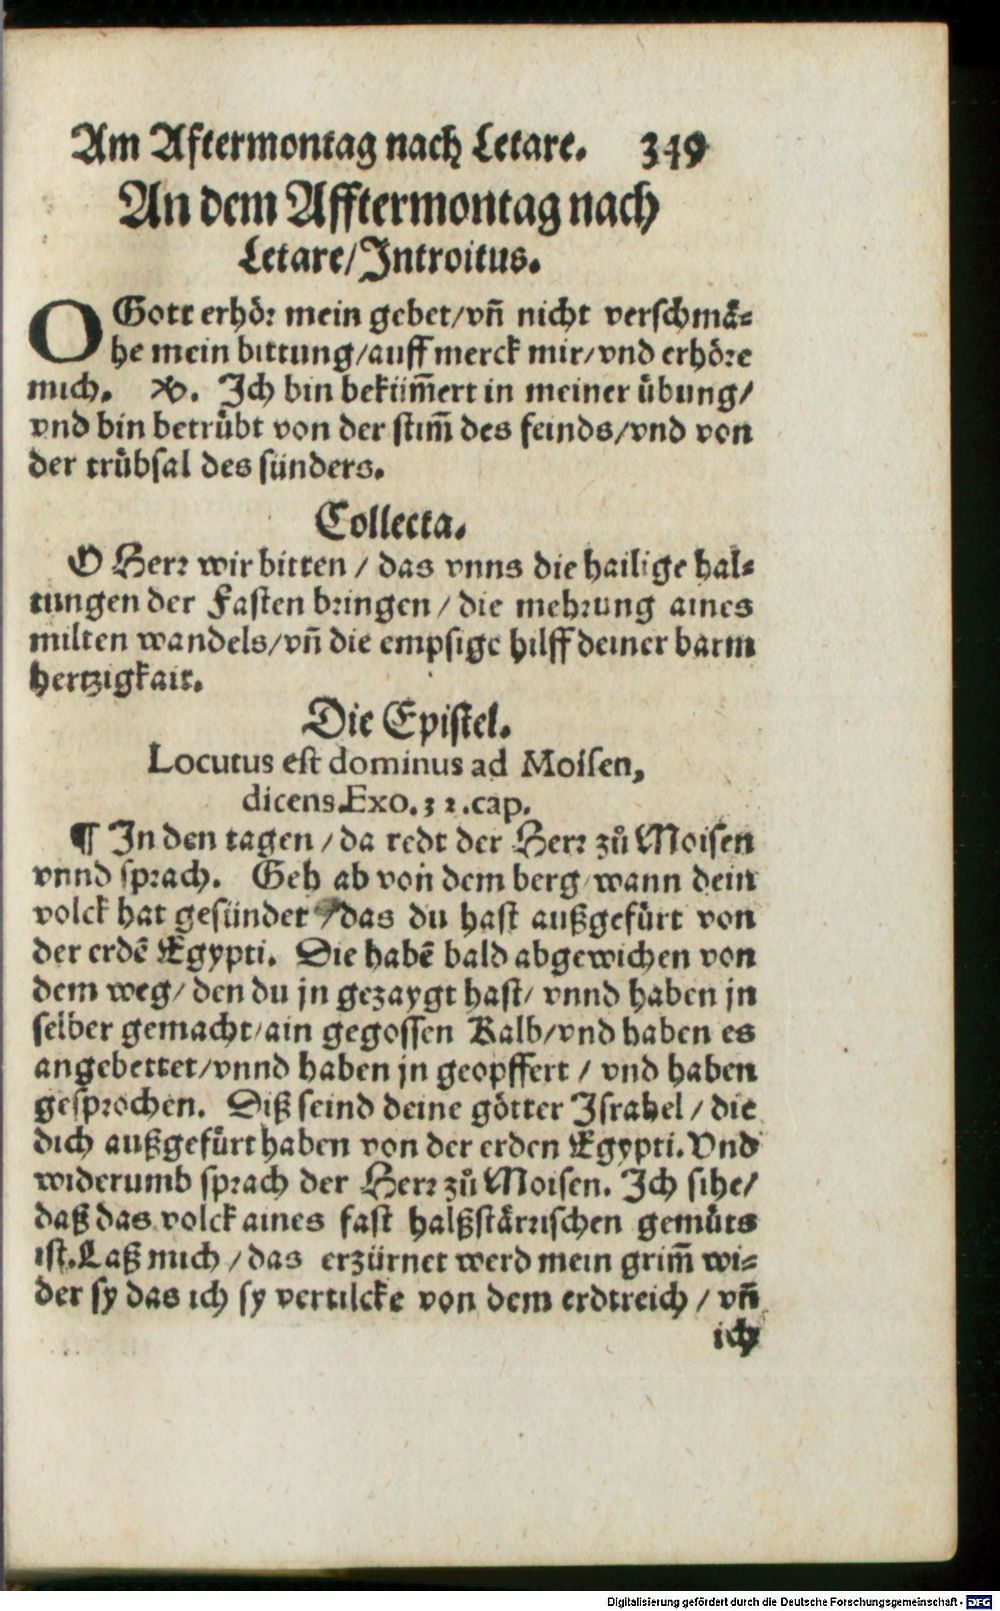 Am Aftermontag nach Letare. 349
An dem Afftermontag nach
Letare/Introitus.
O Gott erhör mein gebet/vn̄ nicht verschmä-
he mein bittung/auff merck mir/vnd erhöre
mich. V. Ich bin beküm̄ert in meiner übung/
vnd bin betrübt von der stim̄ des feinds/vnd von
der trübsal des sünders.
Collecta.
O Herr wir bitten / das vnns die hailige hal-
tungen der Fasten bringen / die mehrung aines
milten wandels/vn̄ die empsige hilff deiner barm
hertzigkait.
Die Epistel.
Locutus est dominus ad Moisen,
dicens. Exo. 32. cap.
¶ In den tagen / da redt der Herr zů Moisen
vnnd sprach. Geh ab von dem berg/wann dein
volck hat gesündet /das du hast außgefürt von
der erdē Egypti. Die habē bald abgewichen von
dem weg/ den du jn gezaygt hast/ vnnd haben jn
selber gemacht/ain gegossen Kalb/vnd haben es
angebettet/vnnd haben jn geopffert / vnd haben
gesprochen. Diß seind deine götter Israhel / die
dich außgefürt haben von der erden Egypti. Vnd
widerumb sprach der Herr zů Moisen. Ich sihe/
daß das volck aines fast halßstärrischen gemüts
ist. Laß mich / das erzürnet werd mein grim̄ wi-
der sy das ich sy vertilcke von dem erdtreich / vn̄
ich
Digitalisierung gefördert durch die Deutsche Forschungsgemeinschaft - DFG